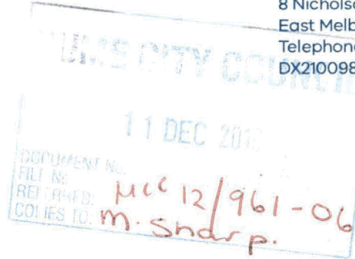 8 Nicholso
East Melb
Telephone
DX210098
CITY COUNCIL
11 DEC 201
DOCUMENT No.
FILE No.
REFERRED: MCC 12/961-06
COPIES TO: M. Sharp.